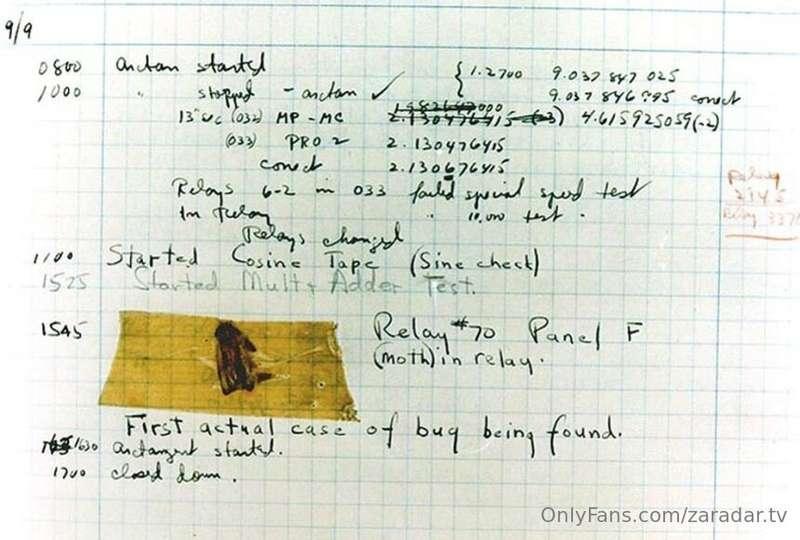 9/9
0800 Antan started
1000 " stopped - antan ✓ { 1.2700 9.037 847 025
9.037 846 995 correct
13"uc (032) MP-MC 2.130476415 (-3) 4.615925059(-2)
(033) PRO 2 2.130476415
correct 2.130676415
Relays 6-2 in 033 failed special speed test
In Relay " 10,000 test .
Relays changed
1100 Started Cosine Tape (Sine check)
1525 Started Mult + Adder Test.
1545 Relay #70 Panel F
(moth) in relay.
First actual case of bug being found.
1630 Antangent started.
1700 closed down.
Relay
2145
Relay 337
OnlyFans.com/zaradar.tv